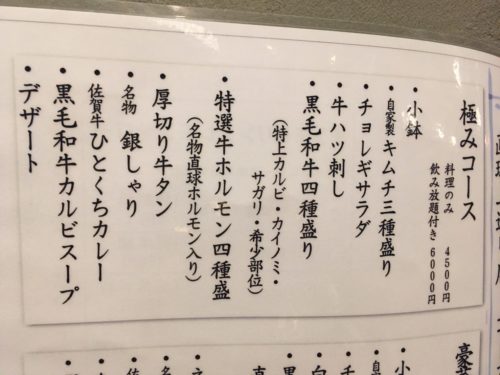 極みコース
料理のみ 4500円
飲み放題付き 6000円
・小鉢
・自家製キムチ三種盛り
・チョレギサラダ
・牛ハツ刺し
・黒毛和牛四種盛り
(特上カルビ・カイノミ・
サガリ・希少部位)
・特選牛ホルモン四種盛
(名物直球ホルモン入り)
・厚切り牛タン
・名物 銀しゃり
・佐賀牛ひとくちカレー
・黒毛和牛カルビスープ
・デザート